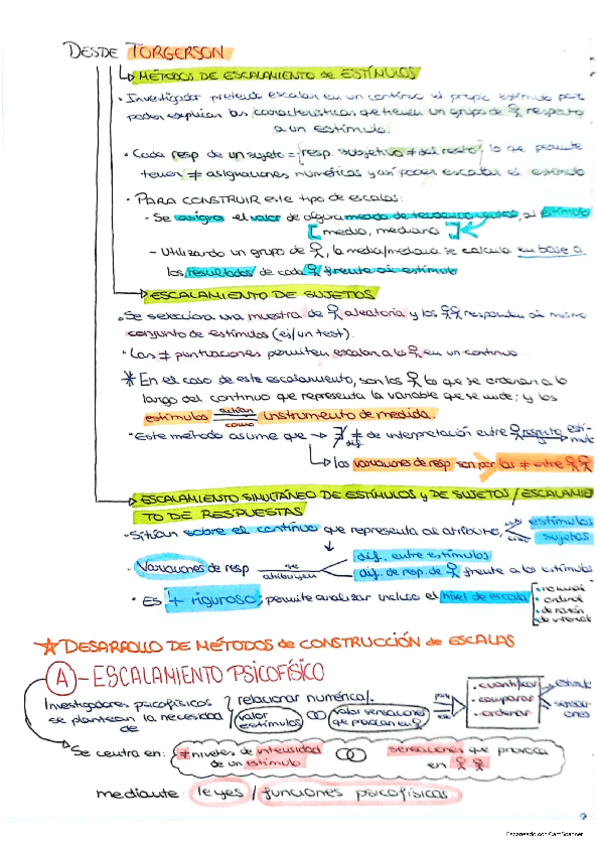 DESDE TORGERSON
MÉTODOS DE ESCALAMIENTO de ESTÍMULOS
• Investigador pretende escalar en un continuo el propio estímulo para
poder explicar las características que tienen un grupo de respecto
a un estímulo.
• Cada resp de un sujeto = resp. subjetiva ≠ del resto, lo que permite
tener ≠ asignaciones numéricas y así poder escalar el estímulo
• PARA CONSTRUIR este tipo de escalas:
• Se asigna el valor de alguna medida de tendencia central, al estímulo
[media, mediana]
- Utilizando un grupo de, la media/mediana se calcula en base a
los resultados de cada frente al estímulo
ESCALAMIENTO DE SUJETOS
• Se selecciona una muestra de aleatoria y los responden al mismo
conjunto de estímulos (ej/un test).
• Las ≠ puntuaciones permiten escalar a los en un continuo
* En el caso de este escalamiento, son los los que se ordenan a lo
largo del continuo que representa la variable que se mide; y los
estímulos actúan como instrumento de medida.
• Este método asume que → ∄ ≠ de interpretación entre respecto estímulo
dif.
→ las variaciones de resp son por las ≠ entre
ESCALAMIENTO SIMULTÁNEO DE ESTÍMULOS y DE SUJETOS / ESCALAMIEN
TO DE RESPUESTAS
• Sitúan sobre el continuo que representa al atributo, estímulos
sujetos
• Variaciones de resp se atribuyen dif. entre estímulos
dif. de resp. de frente a los estímulos
• Es + riguroso, permite analizar incluso el nivel de escala
• nominal
• ordinal
• de razón
• de intervalo
☆ DESARROLLO DE MÉTODOS de CONSTRUCCIÓN de ESCALAS
A - ESCALAMIENTO PSICOFÍSICO
Investigadores psicofísicos
se plantean la necesidad
de
relacionar numérica/.
valor
estímulos
valor sensaciones
que provocan en
para
• cuantificar
• comparar
• ordenar
estímulos
sensaciones
Se centra en: ≠ niveles de intensidad
de un estímulo
sensaciones que provoca
en
mediante leyes / funciones psicofísicas
Escaneado con CamScanner